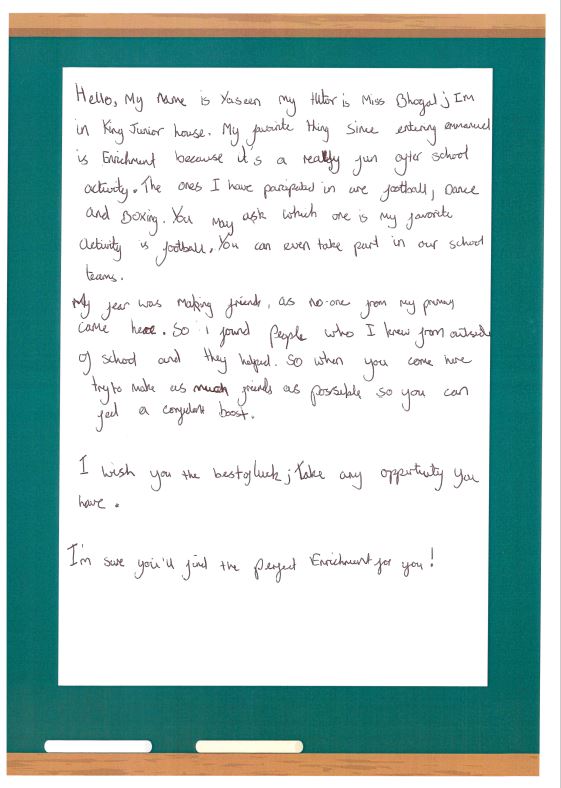 Hello, My Name is Yaseen my tutor is Miss Bhogal; Im
in King Junior house. My favorite thing since entering emmanuel
is Enrichment because it's a really fun after school
activity. The ones I have participated in are football, Dance
and Boxing. You may ask which one is my favorite
activity is football. You can even take part in our school
teams.
My fear was making friends, as no-one from my primary
came here. So i found people who I knew from outside
of school and they helped. So when you come here
try to make as much friends as possible so you can
feel a confident boost.
I wish you the best of luck; Take any opportunity you
have.
I'm sure you'll find the perfect Enrichment for you!